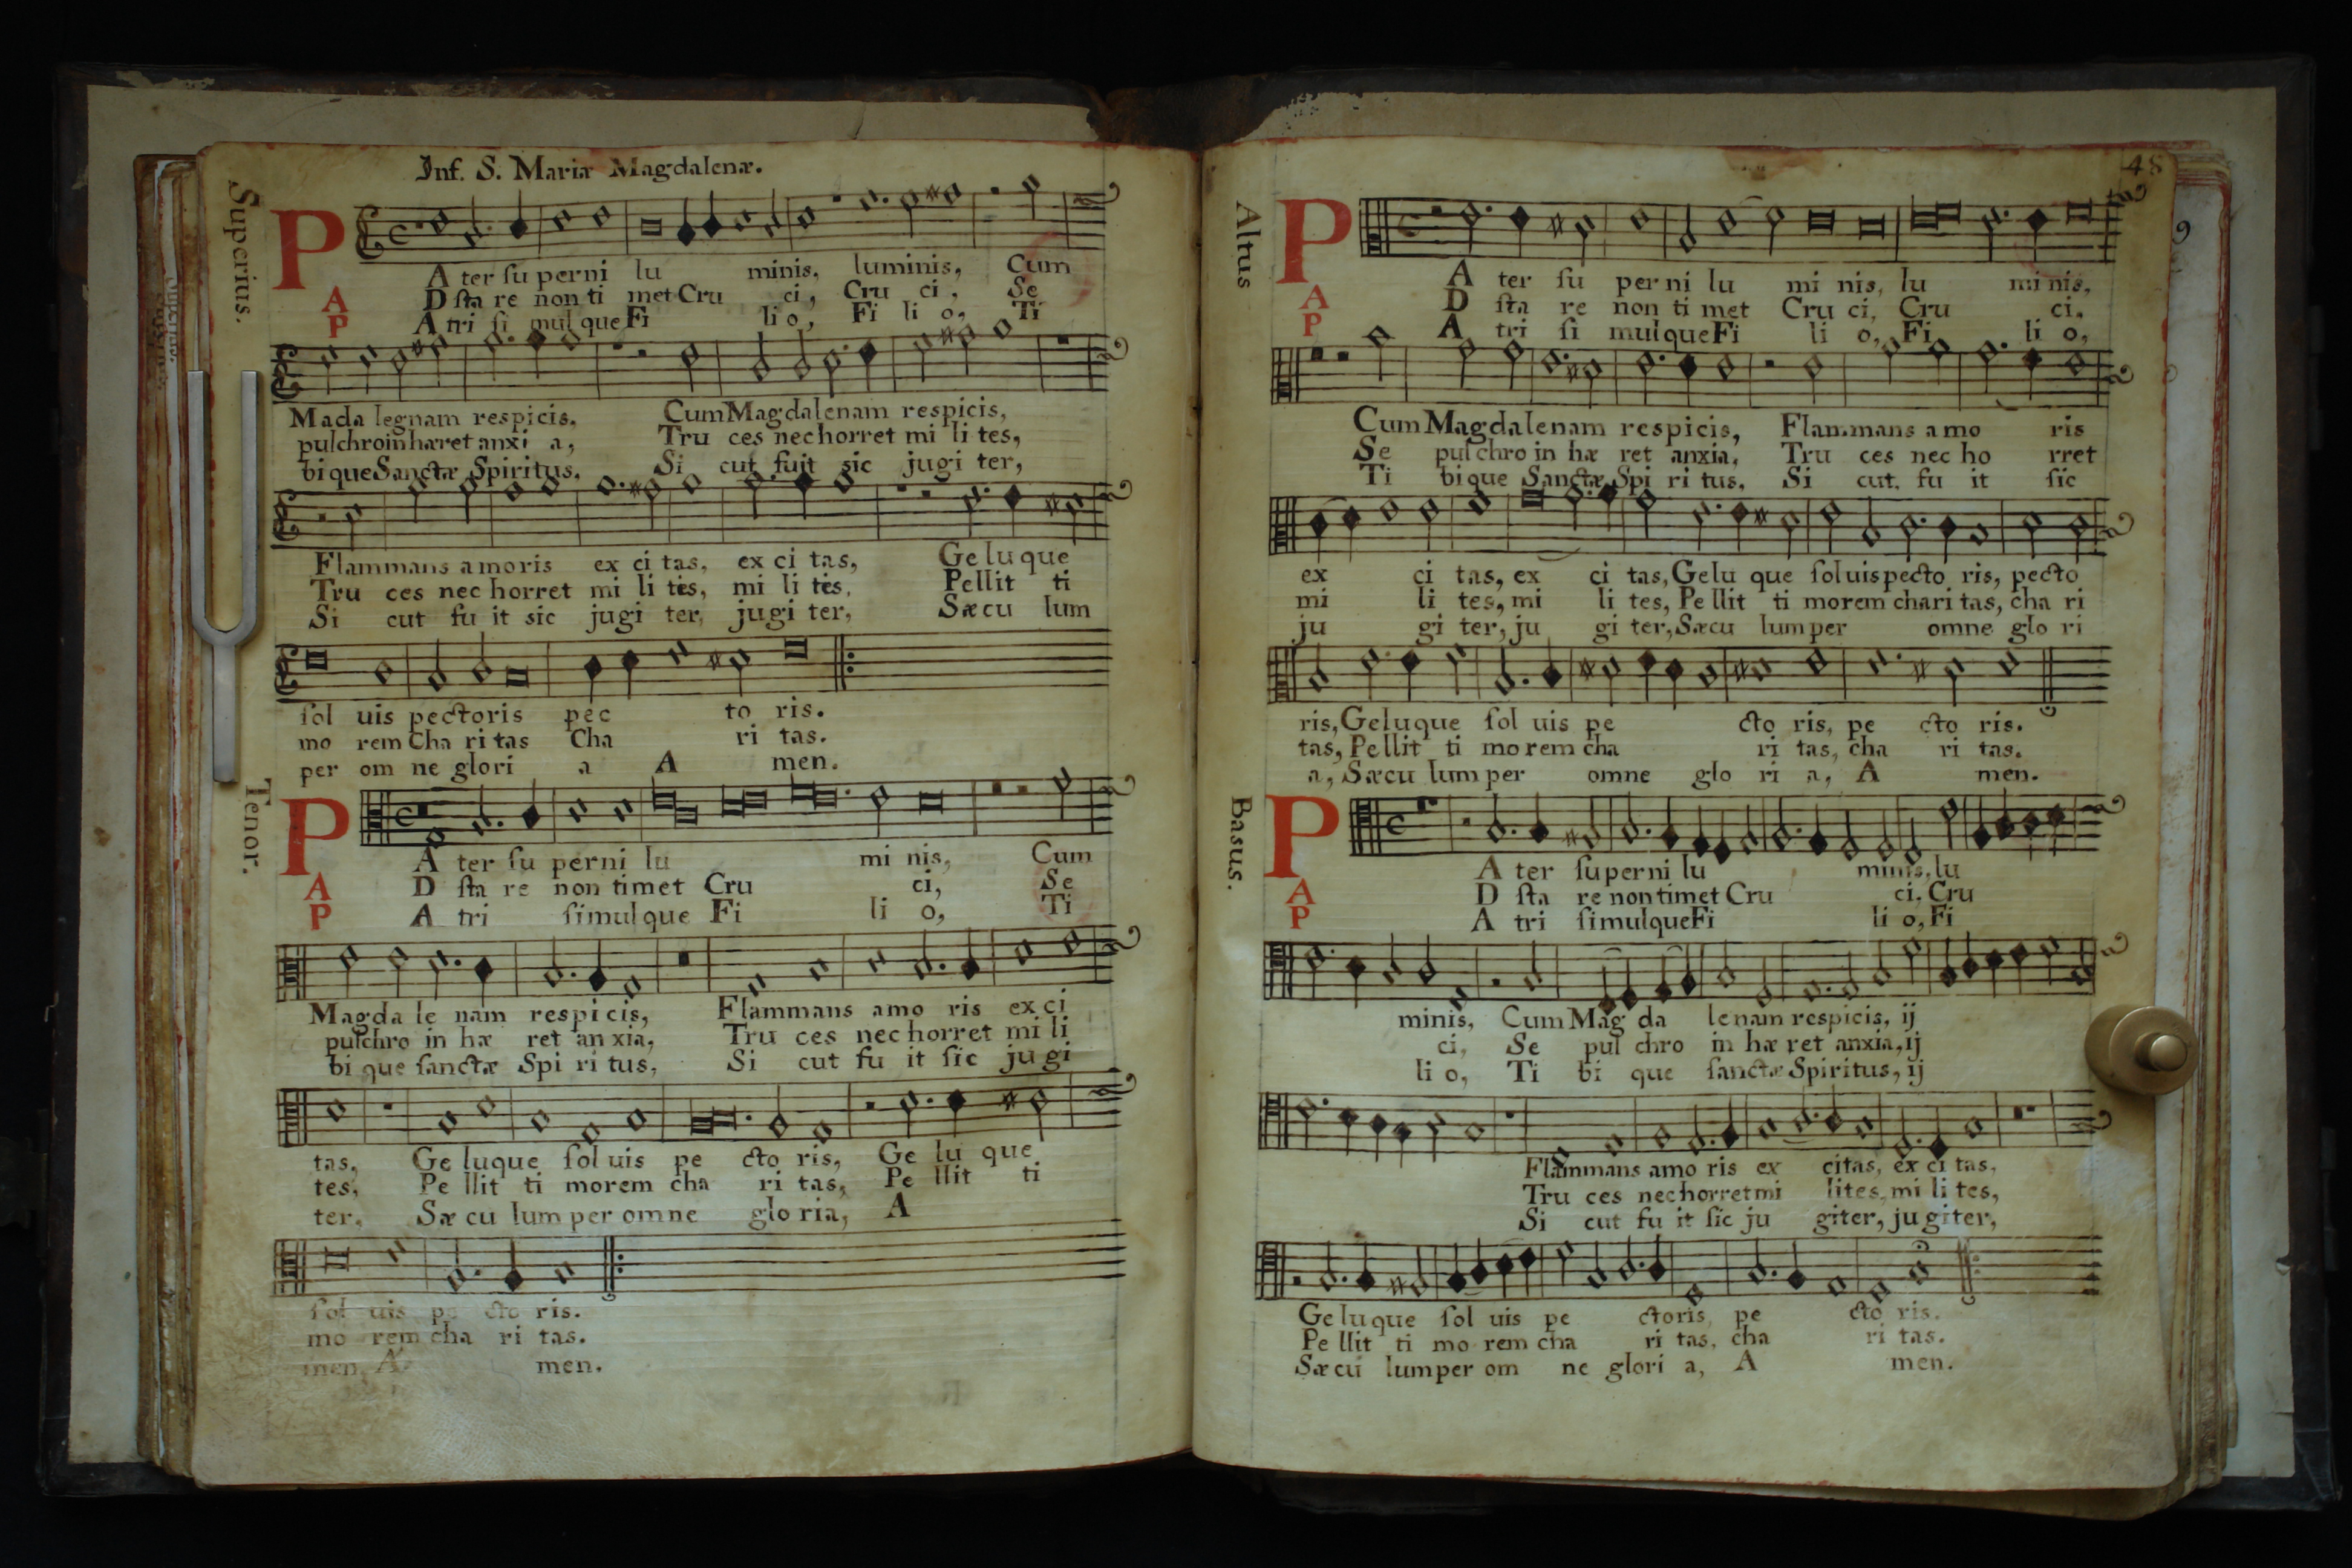 Inf. S. Mariæ Magdalenæ.
Supcrius.
P
A ter ſu perni lu minis, luminis, Cum
A D ſta re non ti met Cru ci, Cru ci, Se
P A tri ſi mul que Fi li o, Fi li o, Ti
Mada legnam respicis, Cum Magdalenam respicis,
pulchro in hæret anxi a, Tru ces nec horret mi li tes,
bi que Sanctæ Spiritus. Si cut fuit sic jugi ter,
Flammans amoris ex ci tas, ex ci tas, Ge lu que
Tru ces nec horret mi li tes, mi li tes, Pellit ti
Si cut fu it sic jugi ter, jugi ter, Sæcu lum
ſol uis pectoris pec to ris.
mo rem Cha ri tas Cha ri tas.
per om ne glori a A men.
Tenor.
P
A ter ſu perni lu mi nis, Cum
A D ſta re non timet Cru ci, Se
P A tri ſimul que Fi li o, Ti
Magda le nam respicis, Flammans amo ris ex ci
pulchro in hæ ret an xia, Tru ces nec horret mi li
bi que ſanctæ Spi ri tus, Si cut fu it ſic ju gi
tas, Ge luque ſol uis pe cto ris, Ge lu que
tes, Pe llit ti morem cha ri tas, Pe llit ti
ter, Sæ cu lum per omne glo ria, A
ſol uis pe cto ris.
mo rem cha ri tas.
men A men.
48
Altus
P
A ter ſu perni lu mi nis, lu mi nis,
A D ſta re non ti met Cru ci, Cru ci.
P A tri ſi mulque Fi li o, Fi li o,
Cum Magdalenam respicis, Flammans a mo ris
Se pulchro in hæ ret anxia, Tru ces nec ho rret
Ti bi que Sanctæ Spi ri tus, Si cut. fu it ſic
ex ci tas, ex ci tas, Gelu que ſoluis pecto ris, pecto
mi li tes, mi li tes, Pe llit ti morem chari tas, cha ri
ju gi ter, ju gi ter, Sæcu lum per omne glo ri
ris, Geluque ſol uis pe cto ris, pe cto ris.
tas, Pellit ti mo rem cha ri tas, cha ri tas.
a, Sæcu lum per omne glo ri a, A men.
Basus.
P
A ter ſuperni lu minis, lu
A D ſta re non timet Cru ci, Cru
P A tri ſimulque Fi li o, Fi
minis, Cum Mag da lenam respicis, ij
ci, Se pul chro in hæ ret anxia, ij
li o, Ti bi que ſanctæ Spiritus, ij
Flammans amo ris ex citas, ex ci tas,
Tru ces nec horret mi lites, mi li tes,
Si cut fu it ſic ju giter, ju giter,
Ge luque ſol uis pe ctoris, pe cto ris.
Pe llit ti mo rem cha ri tas, cha ri tas.
Sæcu lumper om ne glori a, A men.